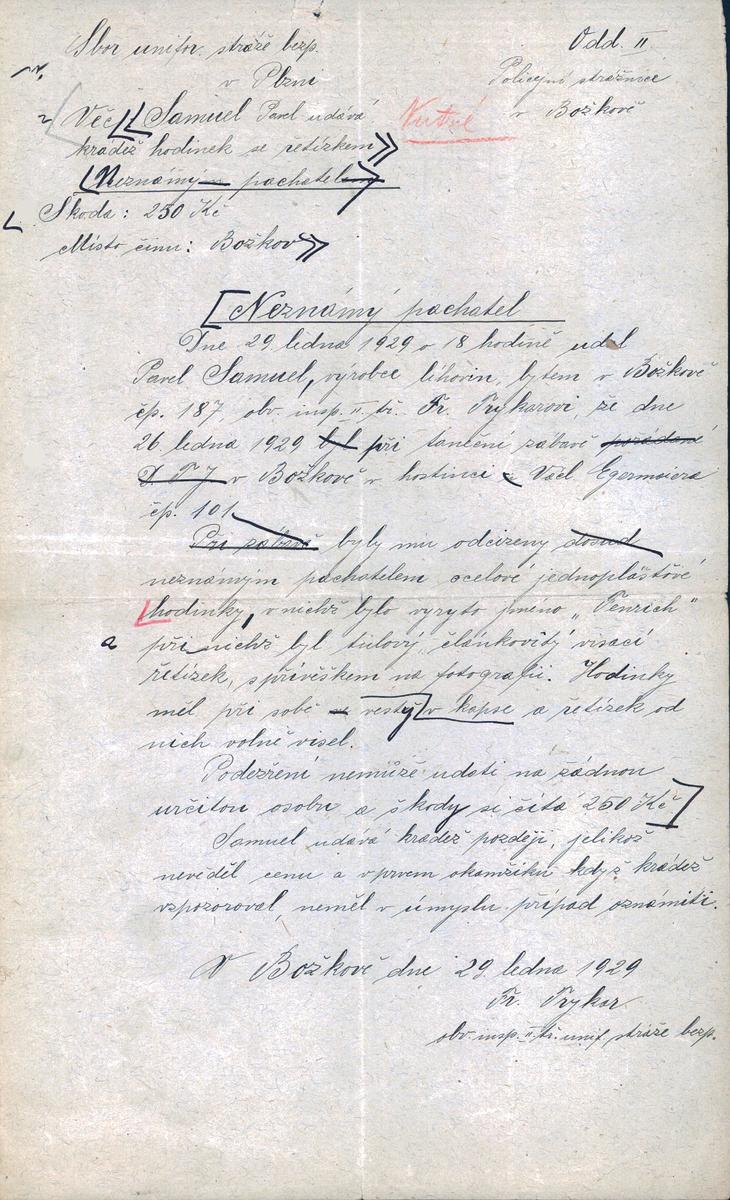 Sbor unifor. stráže bezp. Odd. II.
v Plzni Policejní strážnice
v Božkově
Věc: Samuel Pavel udává Nutné
krádež hodinek se řetízkem
Neznámým pachatelem
Škoda: 250 Kč
Místo činu: Božkov
Neznámý pachatel
Dne 29. ledna 1929 o 18 hodině udal
Pavel Samuel, výrobce lihovin, bytem v Božkově
čp. 187 obv. insp. II. tř. Fr. Trykarovi, že dne
26. ledna 1929 byl při taneční zábavě pořádané
D. T. J. v Božkově v hostinci Václ. Egermaiera
čp. 101.
Při zábavě byly mu odcizeny dosud
neznámým pachatelem ocelové jednoplášťové
hodinky, v nichž bylo vyryto jméno „Tenrich"
při nichž byl tulový, článkovitý visací
řetízek, s přívěškem na fotografii. Hodinky
měl při sobě ve vestě v kapse a řetízek od
nich volně visel.
Podezření nemůže udati na žádnou
určitou osobu a škody si čítá 250 Kč
Samuel udává krádež později, jelikož
nevěděl cenu a v prvem okamžiku když krádež
vzpozoroval, neměl v úmyslu případ oznámiti.
V Božkově dne 29. ledna 1929
Fr. Trykar
obv. insp. II. tř. unif. stráže bezp.